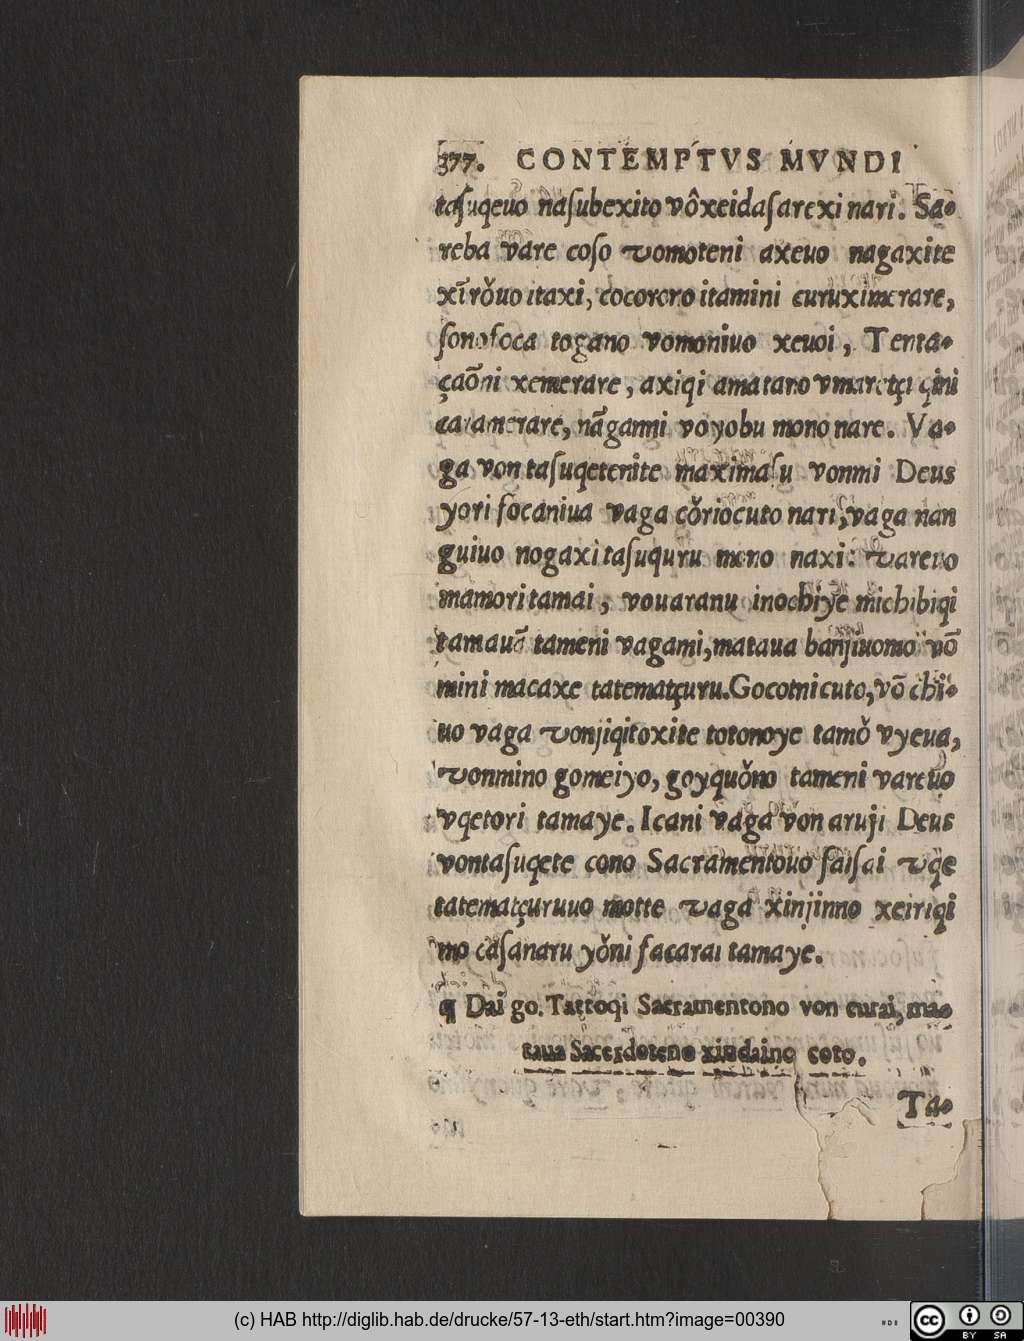 377. CONTEMPTVS MVNDI
taſuqeuo naſubexito vôxeidaſarexi nari. Sa-
reba vare coſo vomoteni axeuo nagaxite
xĩrǒuo itaxi, cocorcro itamini curuximerare,
ſonoſoca togano vomoniuo xeuoi, Tenta-
çaõni xemerare, axiqi amatano vmaretçi çini
caramerare, nãganni voyobu mono nare. Va-
ga von taſuqetenite maximaſu vonmi Deus
yori ſocaniua vaga cǒriocuto nari, vaga nan
guiuo nogaxi taſuquru mono naxi: vareuo
mamori tamai, vouaranu inochiye michibiqi
tamauã tameni vagami, mataua banjiuomo võ
mini macaxe tatematçuru. Gocotnicuto, võ chi-
uo vaga vonjiqitoxite totonoye tamǒ vyeua,
vonmino gomeiyo, goyquǒno tameni vareuo
vqetori tamaye. Icani vaga von aruji Deus
vontaſuqete cono Sacramentouo ſaiſai vqe
tatematçuruuo motte vaga xinjinno xeiriqi
mo caſanaru yǒni facarai tamaye.
¶ Dai go. Tattoqi Sacramentono von curai, ma-
taua Sacerdoteno xindaino coto.
Ta-
(c) HAB http://diglib.hab.de/drucke/57-13-eth/start.htm?image=00390
cc BY SA